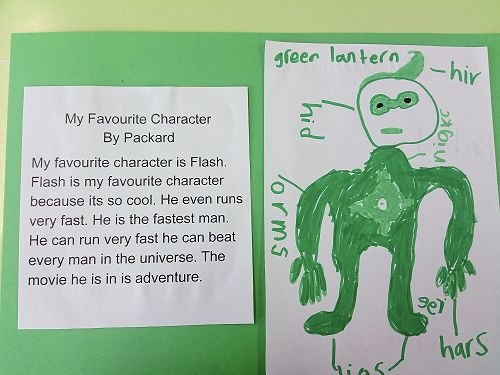 My Favourite Character
By Packard
My favourite character is Flash.
Flash is my favourite character
because its so cool. He even runs
very fast. He is the fastest man.
He can run very fast he can beat
every man in the universe. The
movie he is in is adventure.
green lantern
hir
hid
orms
hars